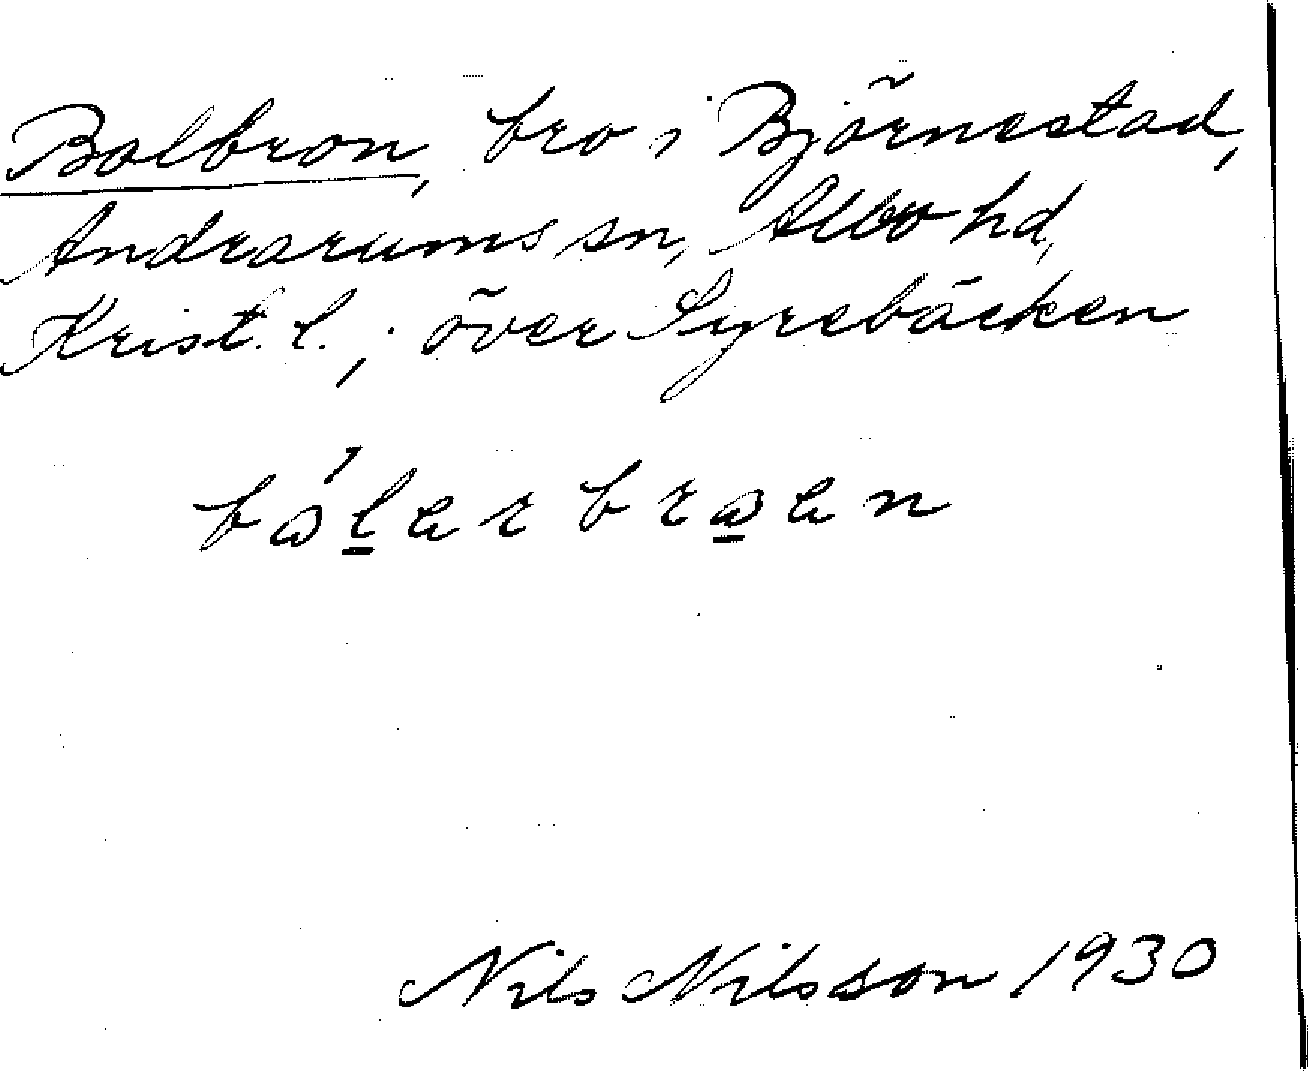 Bolbron, bro i Björnestad,
Andrarums sn, Albo hd,
Krist. l.; över Lyrebäcken
bålerbroen
Nils Nilsson 1930